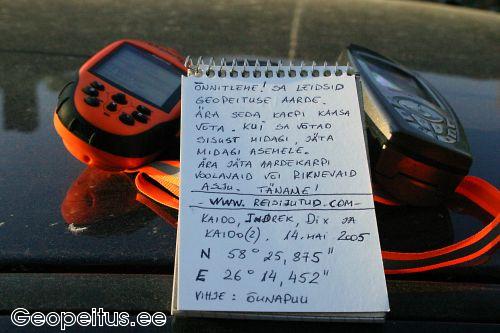 ÕNNITLEME! SA LEIDSID
GEOPEITUSE AARDE.
ÄRA SEDA KARPI KAASA
VÕTA. KUI SA VÕTAD
SISUST MIDAGI, JÄTA
MIDAGI ASEMELE.
ÄRA JÄTA AARDEKARPI
VOOLAVAID VEI RIKNEVAID
ASJU. TÄNAME!
- WWW. REISIJUTUD.COM -
KAIDO, INDREK, DIX JA
KAIDO(2). 14. MAI 2005
N 58° 25,875"
E 26° 14,452"
VIHJE: ÕUNAPUU
Geopeitus.ee